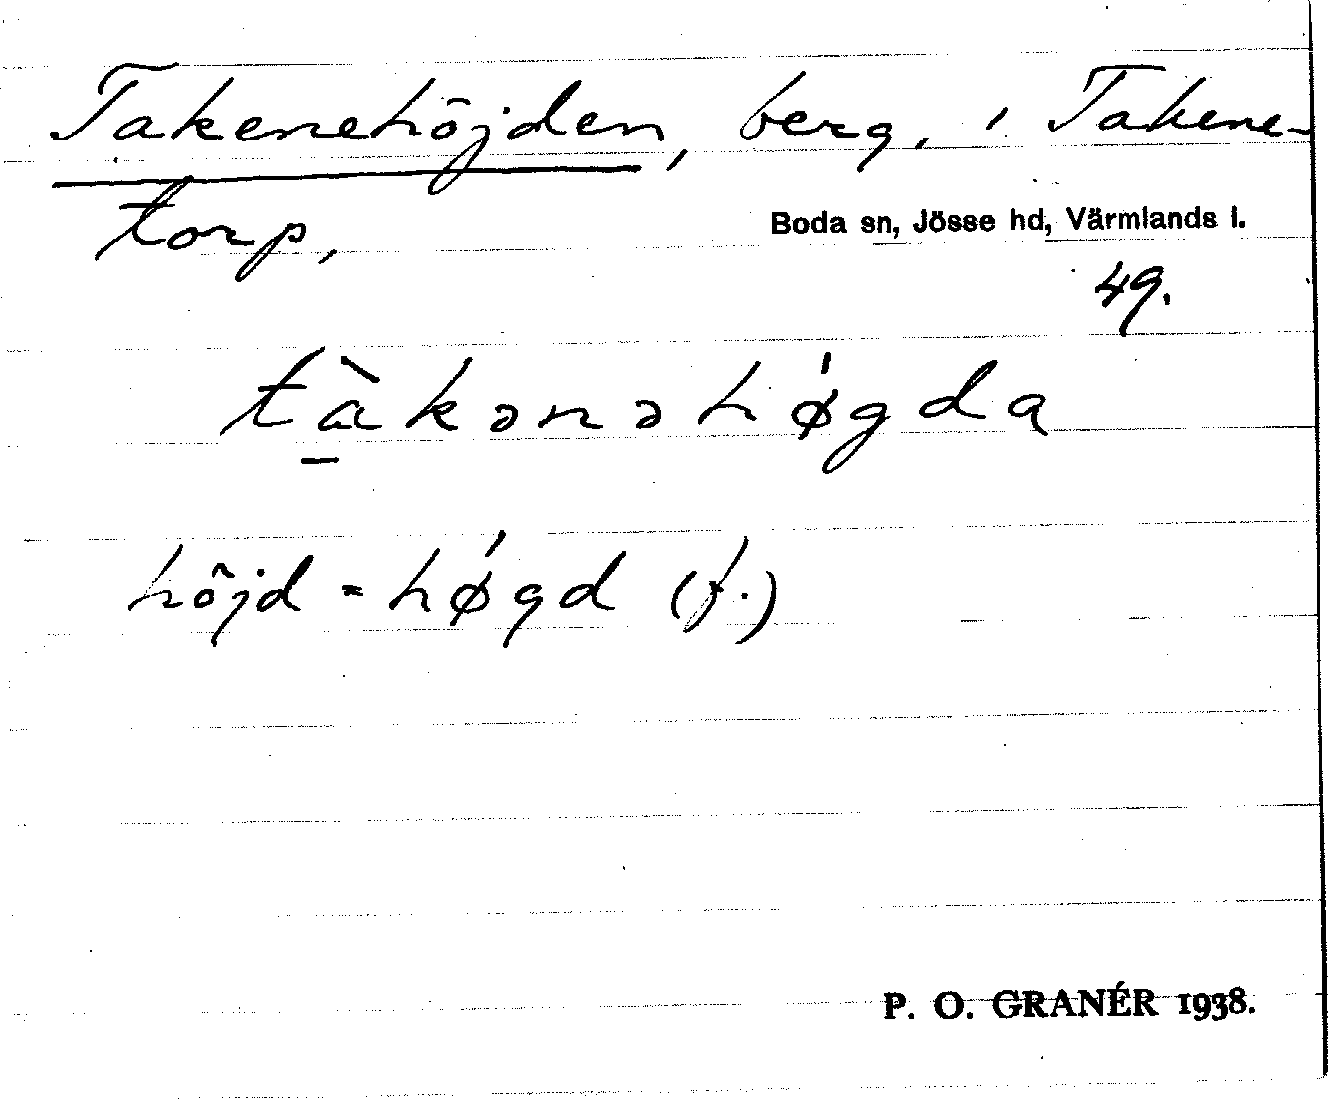 Takenehöjden, berg, i Takene-
torp,
Boda sn, Jösse hd, Värmlands l.
49.
tàkənəhǿgda
höjd = hǿgd (f.)
P. O. GRANÉR 1938.